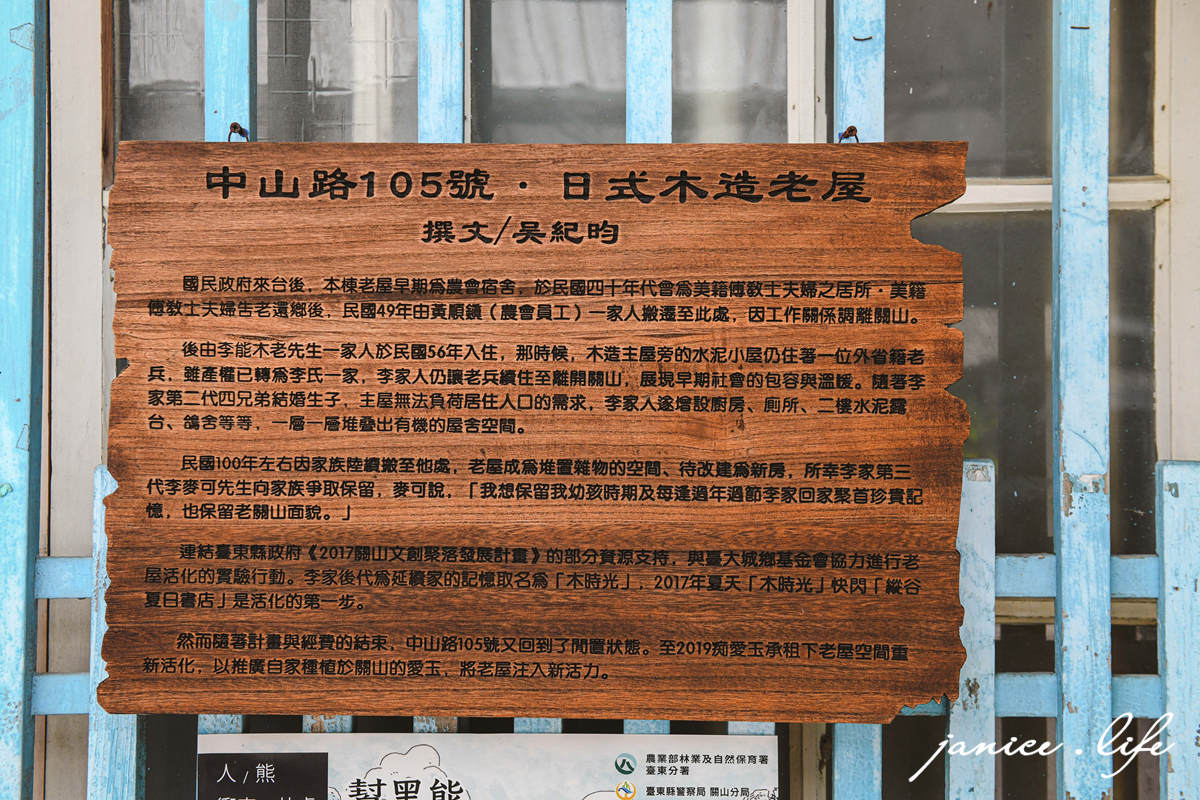 中山路105號・日式木造老屋
撰文/吳紀昀
國民政府來台後，本棟老屋早期為農會宿舍，於民國四十年代曾為美籍傳教士夫婦之居所・美籍
傳教士夫婦告老還鄉後，民國49年由黃順鎮（農會員工）一家人搬遷至此處，因工作關係調離關山。
後由李能木老先生一家人於民國56年入住，那時候，木造主屋旁的水泥小屋仍住著一位外省籍老
兵，雖產權已轉為李氏一家，李家人仍讓老兵續住至離開關山，展現早期社會的包容與溫暖。隨著李
家第二代四兄弟結婚生子，主屋無法負荷居住人口的需求，李家人逐增設廚房、廁所、二樓水泥露
台、鴿舍等等，一層一層堆疊出有機的屋舍空間。
民國100年左右因家族陸續搬至他處，老屋成為堆置雜物的空間、待改建為新房，所幸李家第三
代李麥可先生向家族爭取保留，麥可說，「我想保留我幼孩時期及每逢過年過節李家回家聚首珍貴記
憶，也保留老關山面貌。」
連結臺東縣政府《2017關山文創聚落發展計畫》的部分資源支持，與臺大城鄉基金會協力進行老
屋活化的實驗行動。李家後代為延續家的記憶取名為「木時光」，2017年夏天「木時光」快閃「縱谷
夏日書店」是活化的第一步。
然而隨著計畫與經費的結束，中山路105號又回到了閒置狀態。至2019痴愛玉承租下老屋空間重
新活化，以推廣自家種植於關山的愛玉，將老屋注入新活力。
janice.life
人/熊
幫黑熊
農業部林業及自然保育署
臺東分署
臺東縣警察局 關山分局